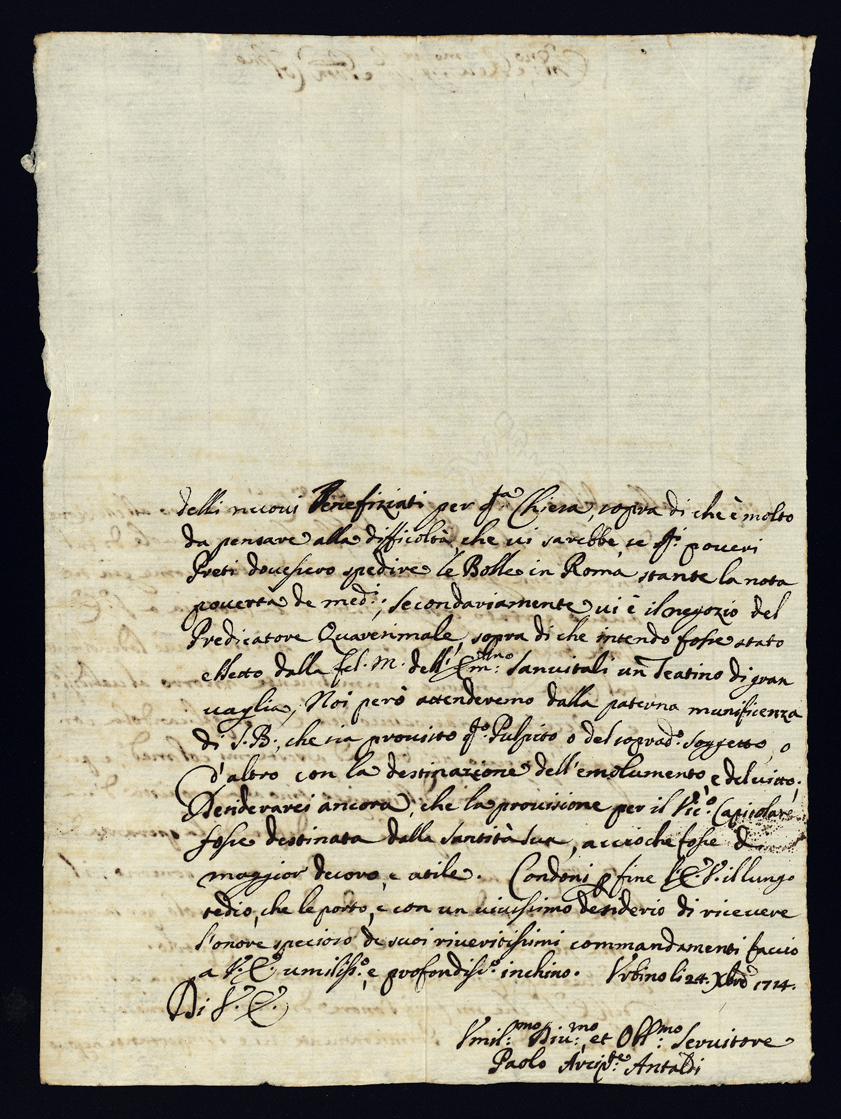 delli nuovi Benefiziati per q.ta Chiesa, sopra di che è molto
da pensare alla difficoltà, che vi sarebbe, se q.i poveri
Preti dovessero spedire le Bolle in Roma stante la nota
povertà de med.i; Secondariamente vi è il negozio del
Predicatore Quaresimale, sopra di che intendo fosse stato
eletto dalla fel. m. dell'Em.mo Sanvitali un Teatino di gran
vaglia, Noi però attenderemo dalla paterna munificenza
di S. B., che sia provisto q.o Pulpito o del soprad.o Soggetto, o
d'altro con la destinazione dell'emolumento, e del vitto;
Desiderarei ancora, che la provisione per il Vic.o Capitolare
fosse destinata dalla Santità Sua, accioche fosse di
maggior decoro, e utile. Condoni p fine l'E. V. il lungo
tedio, che le porto, e con un vivissimo desiderio di ricevere
l'onore specioso de suoi riveritissimi commandamenti faccio
a V. E. umiliss.o, e profondiss.o inchino. Urbino li 24. Xbre 1714.
Di V. E.
Umil.mo Div.mo et Obl.mo Servitore
Paolo Arcip.te Antaldi